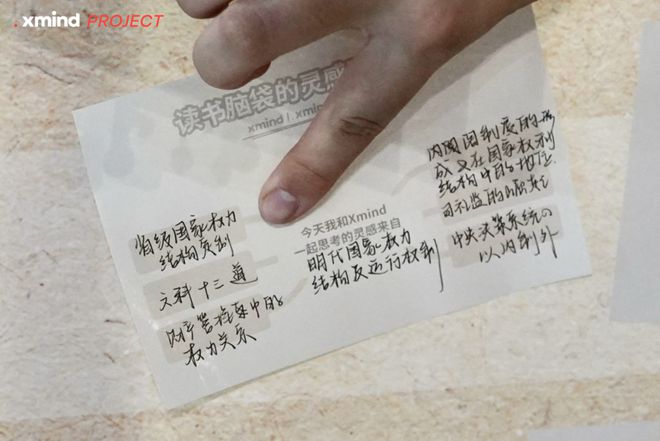 xmind PROJECT
读书脑袋的灵感
xmind | .xmin
省级国家权力
结构变制
六科十三道
财产管权案中的
权力关系
今天我和Xmind
一起思考的灵感来自
明代国家权力
结构及运行机制
内阁制度的形
成又在国家权利
结构中的地位
司礼监的崛起
中央决策系统の
以内制外